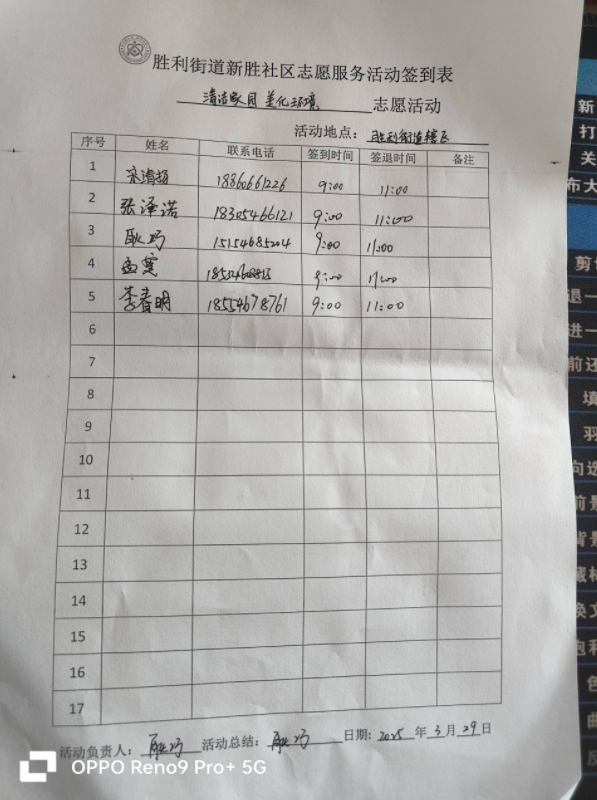 胜利街道新胜社区志愿服务活动签到表
清洁家园 美化环境 志愿活动
活动地点: 胜利街道辖区
序号 姓名 联系电话 签到时间 签退时间 备注
1 宋清扬 18860661226 9:00 11:00
2 张泽诺 18305466121 9:00 11:00
3 耿巧 15154685204 9:00 11:00
4 孟 9:00 11:00
5 李春明 18554678761 9:00 11:00
6
7
8
9
10
11
12
13
14
15
16
17
活动负责人: 耿巧 活动总结: 耿巧 日期: 2025 年 3 月 29 日
OPPO Reno9 Pro+ 5G
新
打
关
布大
剪
退一
进一
前还
填
羽
向选
前景
背景
藏
换文
饱和
色
曲
反